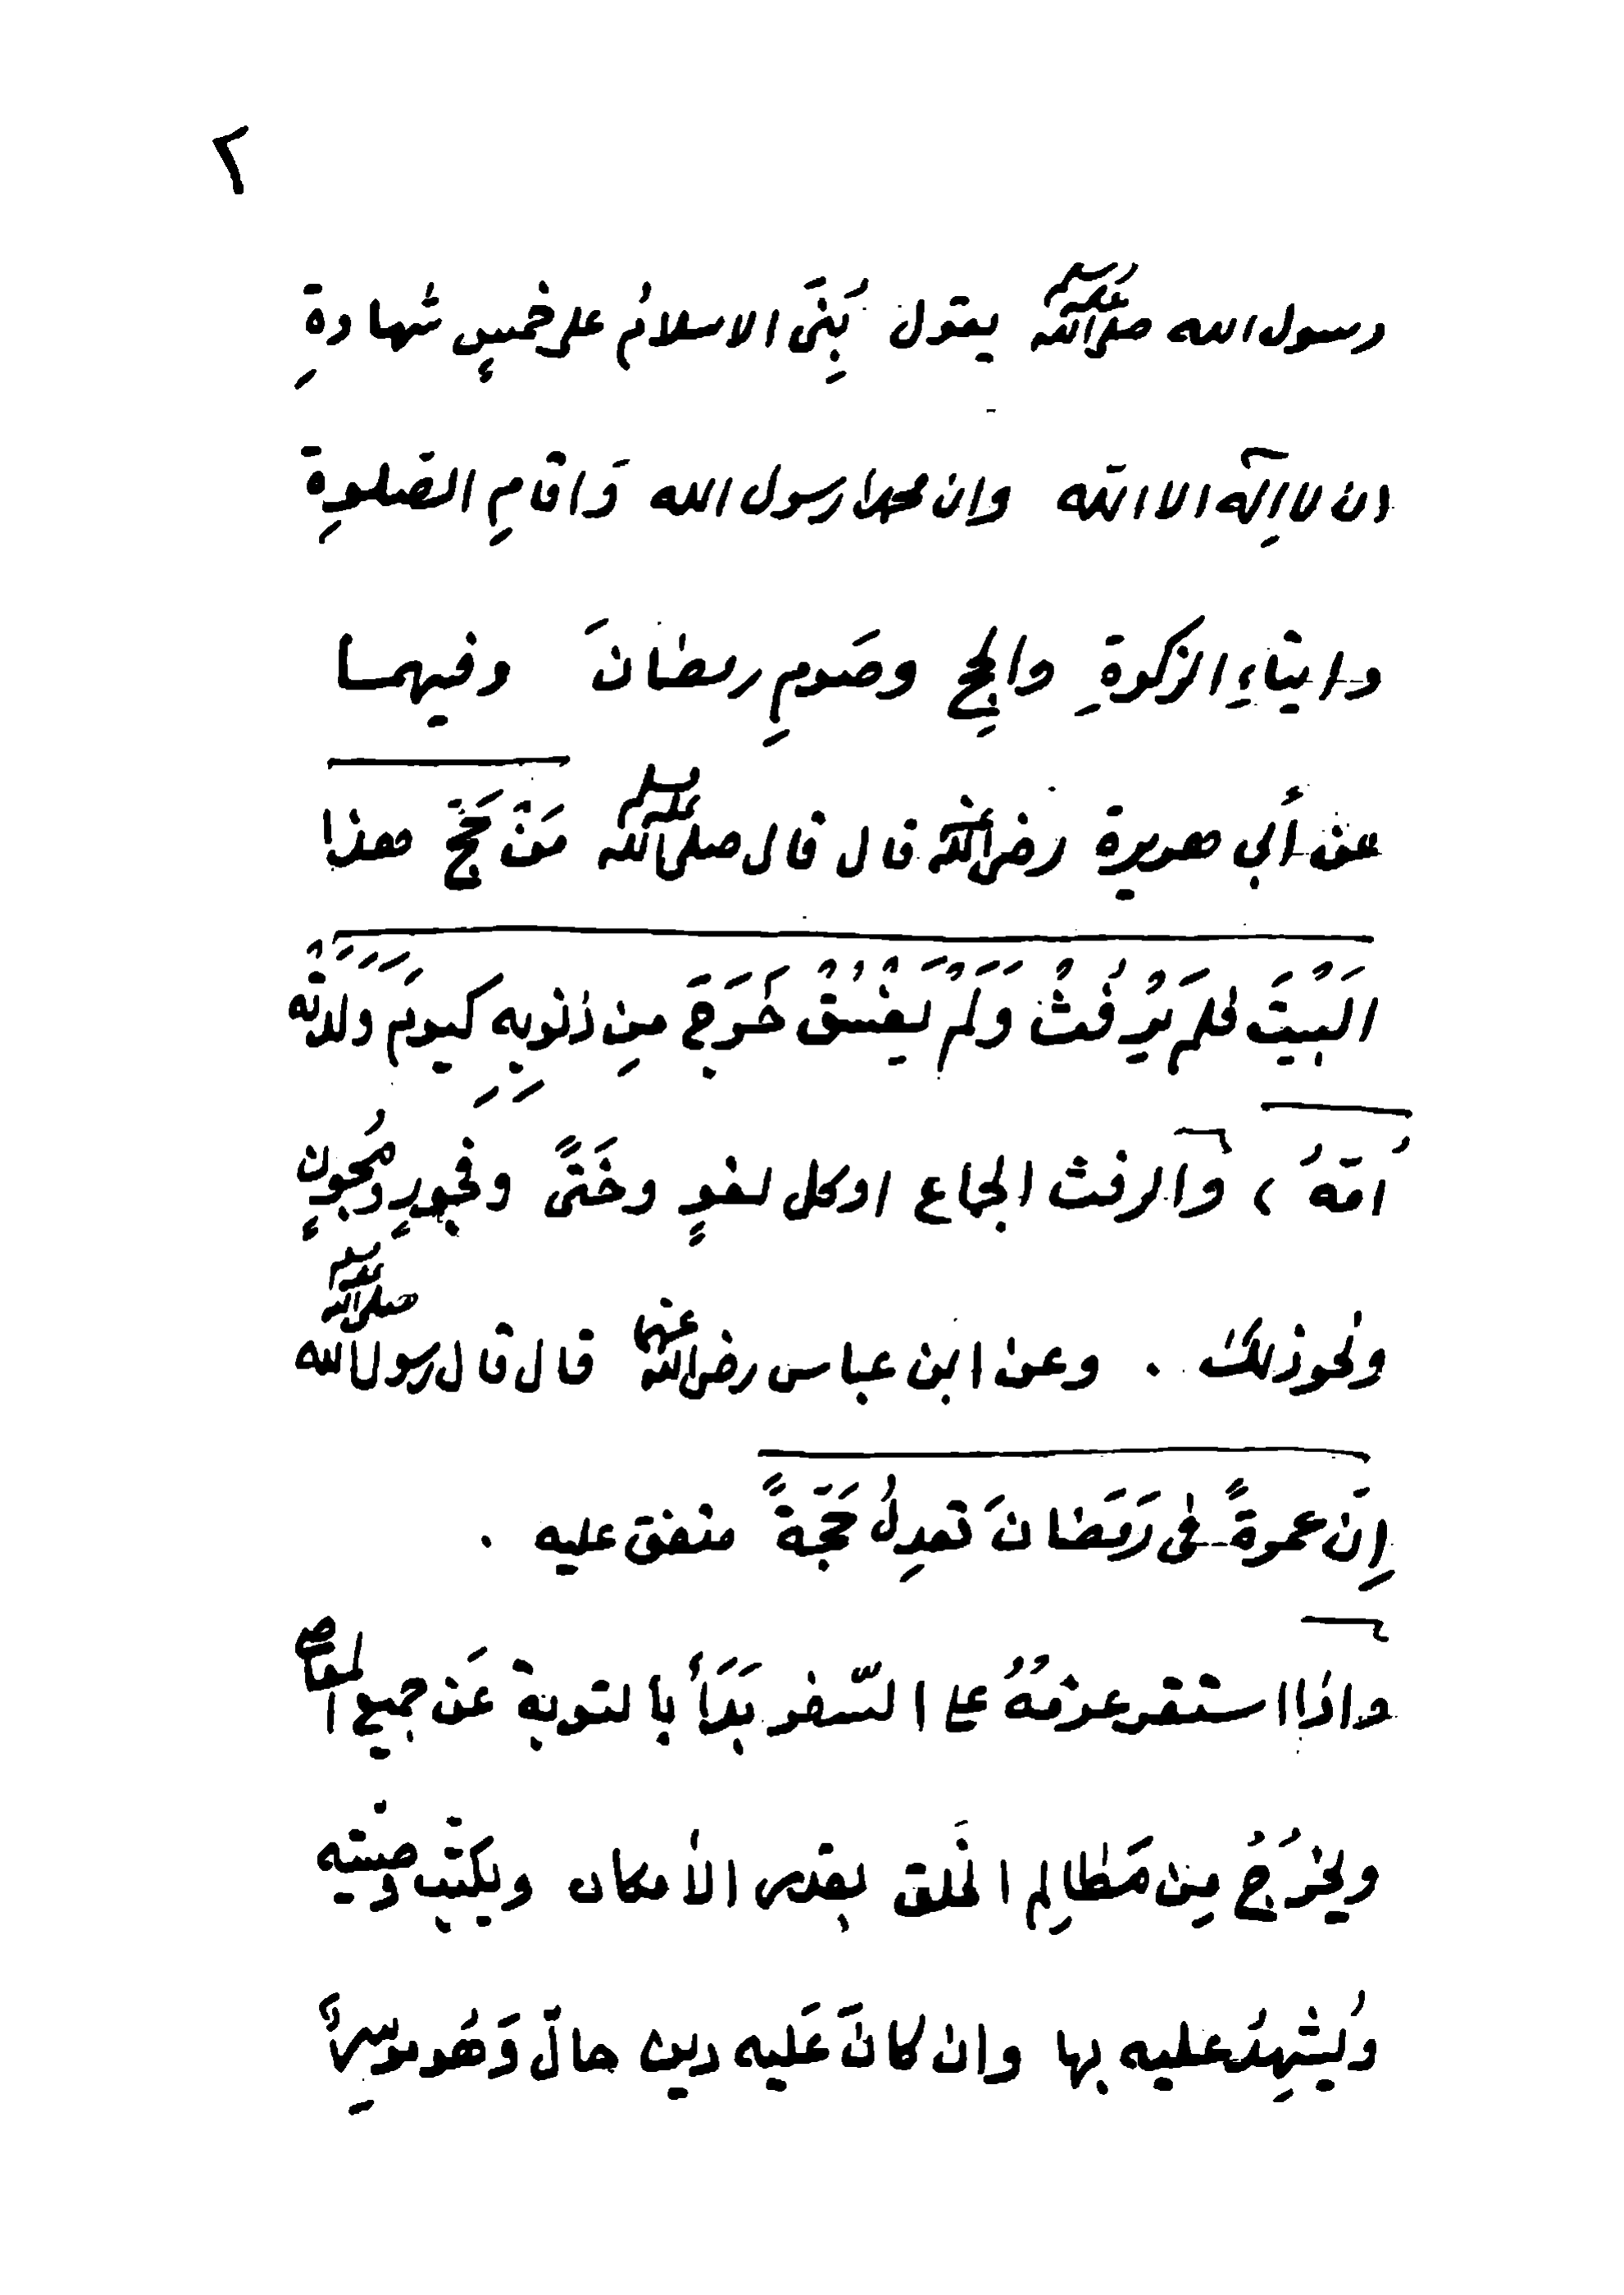 ٢
رسول الله صلى الله عليه وسلم يقول بُنِيَ الاسلامُ على خمسٍ شهادةِ
ان لا اِلٓه الا الله وان محمدا رسول الله وَاقامِ الصّلوةِ
وايتاءِ الزكوةِ والحجِ وصَومِ رمضانَ وفيهما
عن أبي هريرة رضي الله عنه قال قال صلى الله عليه وسلم مَنْ حَجّ هذا
البَيْتَ فلم يَرْفُثْ وَلَمْ يَفْسُقْ خَرَجَ مِن ذنوبِهِ كيومَ ولدتْه
اُمّهُ ، والرفث الجماع او كل لغوٍ وخَنًى وفجورٍ ومُجونٍ
ونحو ذلك . وعن ابن عباس رضي الله عنهما قال قال رسول الله صلى الله عليه وسلم
اِنّ عمرةً في رَمَضانَ تعدِلُ حَجّةً متفق عليه .
واذا استقر عزمُهُ على السّفر بَدَأَ بالتوبة عَن جميع المعاصي
ويخرُجُ مِن مَظالِم الخَلق بقدر الأمكان ويكتب وصيته
ويُشهِدُ عليه بها وان كانَ عَليه دين حالّ وَهُو موسِرٌ